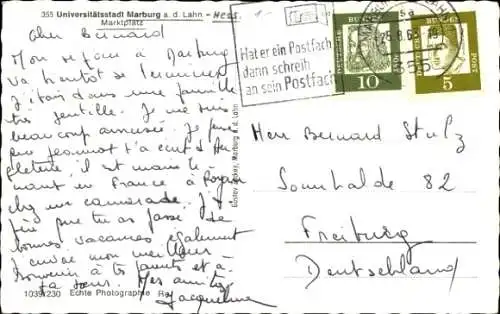 355 Universitätsstadt Marburg a. d. Lahn - Hess.
Marktplatz
Cher Bernard
Mon séjour à Marburg
va bientôt se terminer
J'étais dans une famille
très gentille. Je me suis
beaucoup amusée. Je
que jeannot t'a écrit d'An
gleterre, il est mainte
nant en France à Royan
chez un camarade. J'es
père que tu as passé de
bonnes vacances également
mon meilleur
souvenir à tes parents et à
ta sœur. Mes amitiés
Jacqueline
1039/230 Echte Photographie
Marburg a. d. Lahn
Hat er ein Postfach
dann schreib
an sein Postfach
25.8.65
355
DEUTSCHE BUNDESPOST
10
5
Herr Bernard Stulz
Sonnhalde 82
Freiburg
Deutschland